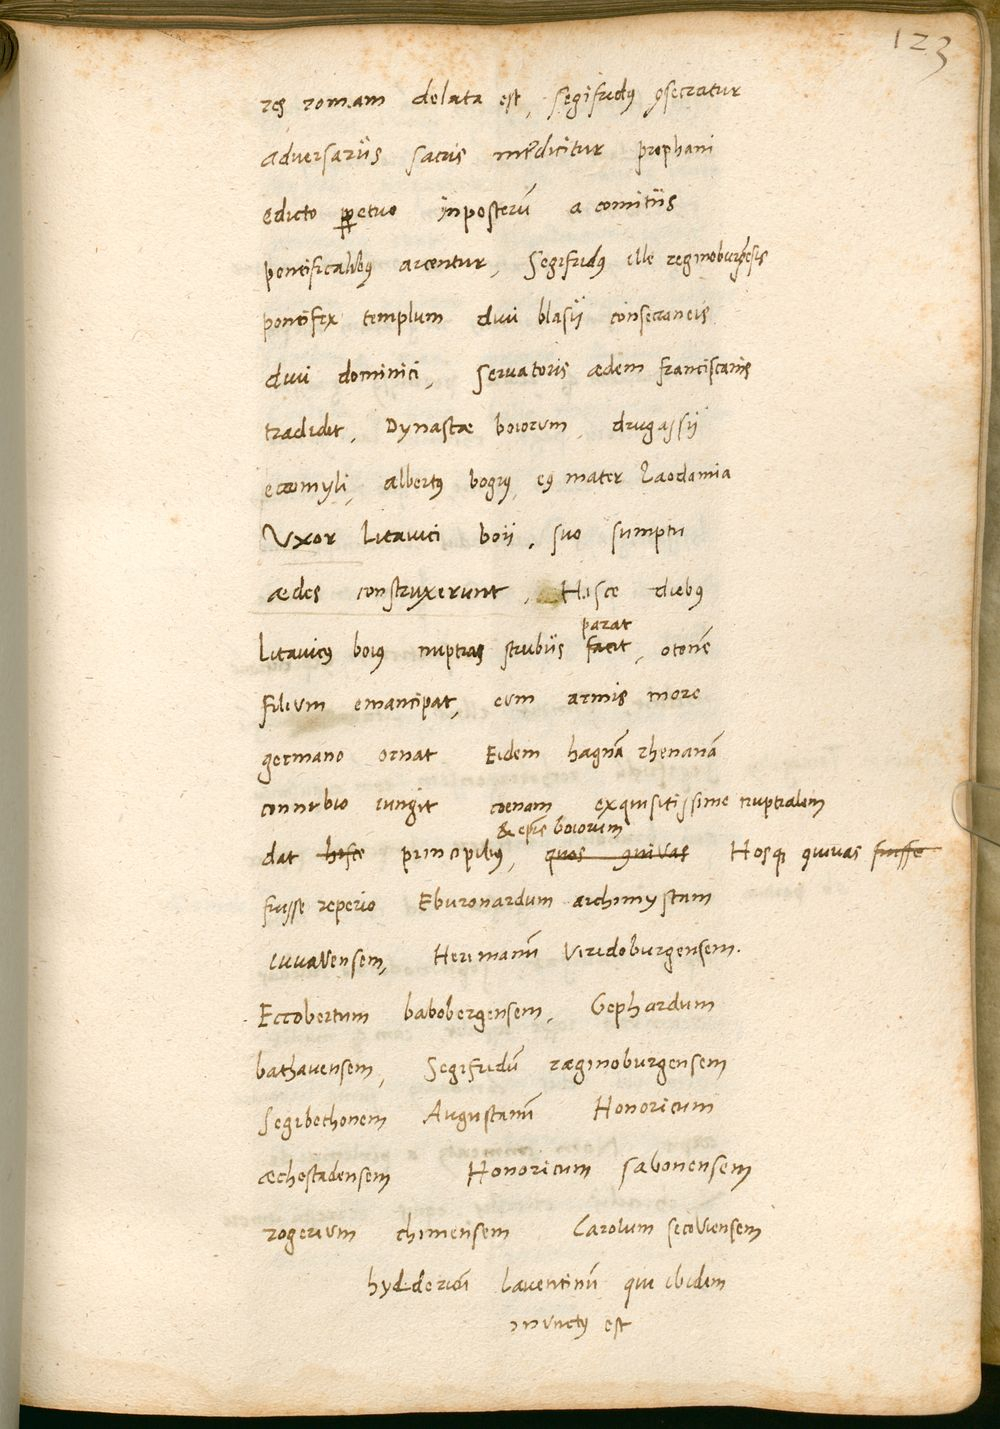 123
res romam delata est, Segifridꝰ ꝯsecratur
adversariis sacris interdicitur prophani
edicto ꝑpetuo inposterū a comitiis
pontificalibꝰ arcentur, Segifridꝰ ille reginoburgēsis
pontifex templum divi blasii consecraneis
divi dominici, Servatoris ædem franciscanis
tradidit, Dynastæ boiorum, drugassii
eccomyli, albertꝰ bogiꝰ, eiꝰ mater Laodamia
Uxor Litavici boii, suo sumptu
ædes construxerunt, Hisce diebꝰ
parat
Litavicꝰ boiꝰ nuptias strubiis facit, otonē
filium emancipat, eum armis more
germano ornat Eidem hagnā rhenanā
connubio iungit coenam exquisitissime nuptialem
& epīs boiorum
dat hisce principibꝰ, quos ꝯvivas Hosqꝫ ꝯvivas fuisse
fuisse reperio Eburonardum archimystam
iuvavensem, Herimanū Viridoburgensem.
Eccobertum babobergensem, Gephardum
bathavensem, Segifridū ræginoburgensem
Segibothonem Augustanū Honoricum
æchostadensem Honoricum sæbonensem
rogerium chimensem Carolum secoviensem
hyldericū laventinū qui ibidem
inunctꝰ est